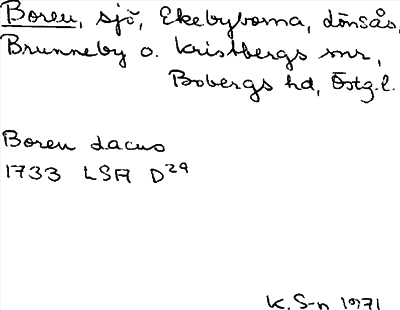 Boren, sjö, Ekebyborna, Lönsås,
Brunneby o. Kristbergs snr,
Bobergs hd, Östg.l.
Boren Lacus
1733 LSA D29
K. S-n 1971